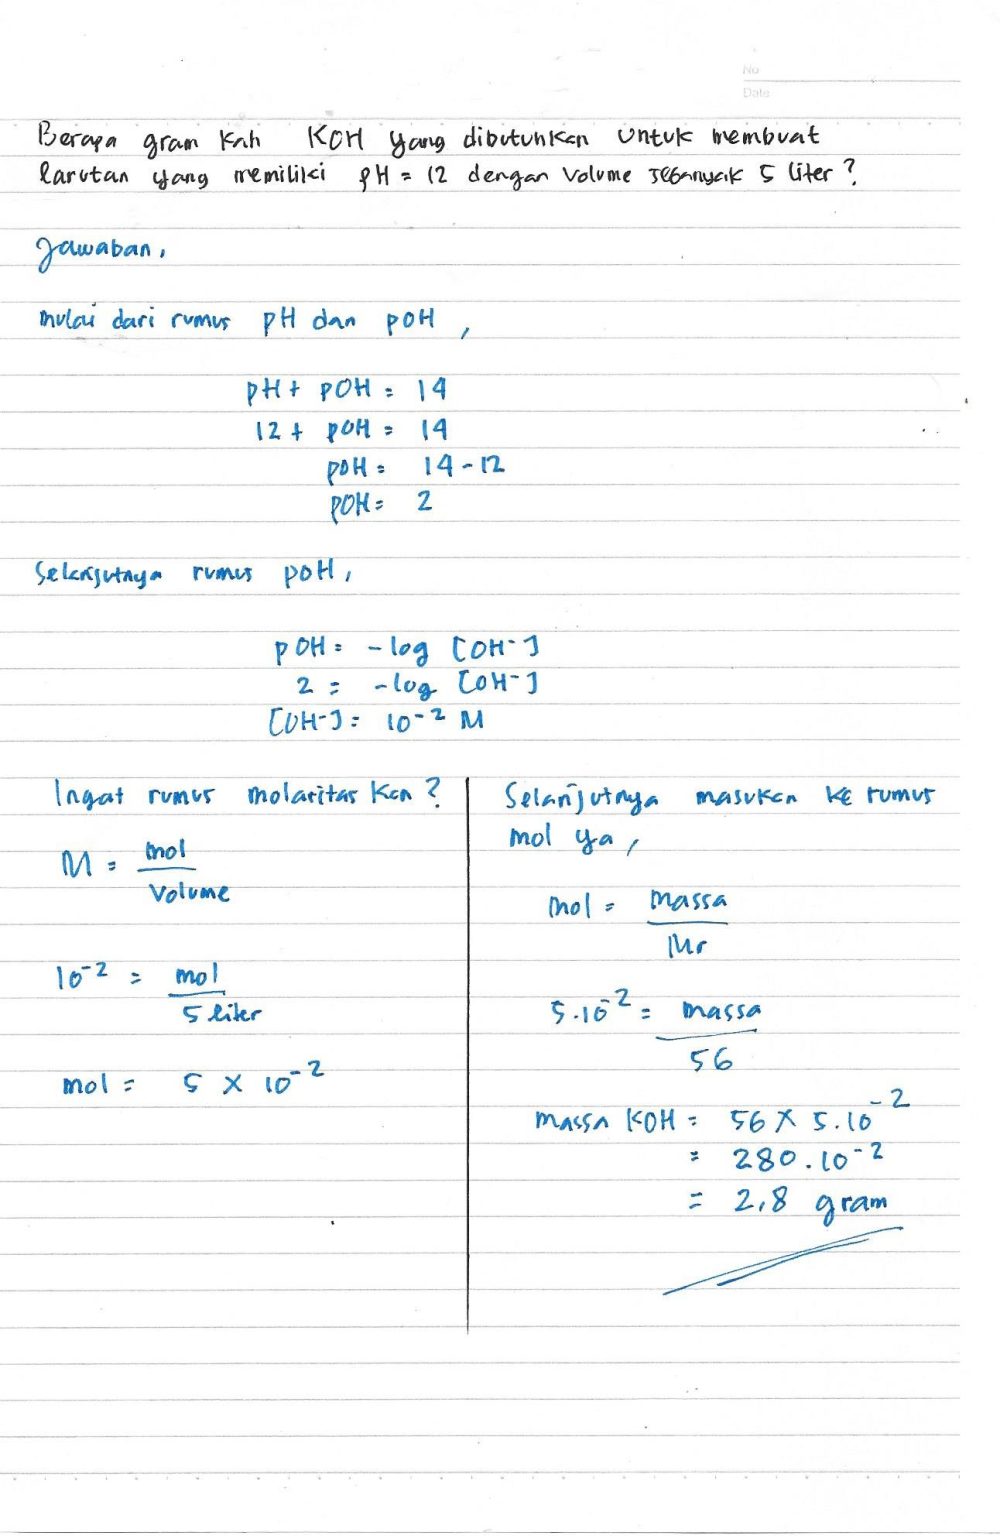 No
Date
Berapa gram kah KOH yang dibutuhkan untuk membuat
larutan yang memiliki pH = 12 dengan volume sebanyak 5 liter?
Jawaban,
mulai dari rumus pH dan pOH,
pH + pOH = 14
12 + pOH = 14
pOH = 14 - 12
pOH = 2
Selanjutnya rumus pOH,
pOH = -log [OH-]
2 = -log [OH-]
[OH-] = 10⁻² M
Ingat rumus molaritas kan?
M = mol
Volume
10⁻² = mol
5 liter
mol = 5 x 10⁻²
Selanjutnya masukan ke rumus
mol ya,
mol = massa
Mr
5.10⁻² = massa
56
massa KOH = 56 x 5.10⁻²
= 280.10⁻²
= 2,8 gram